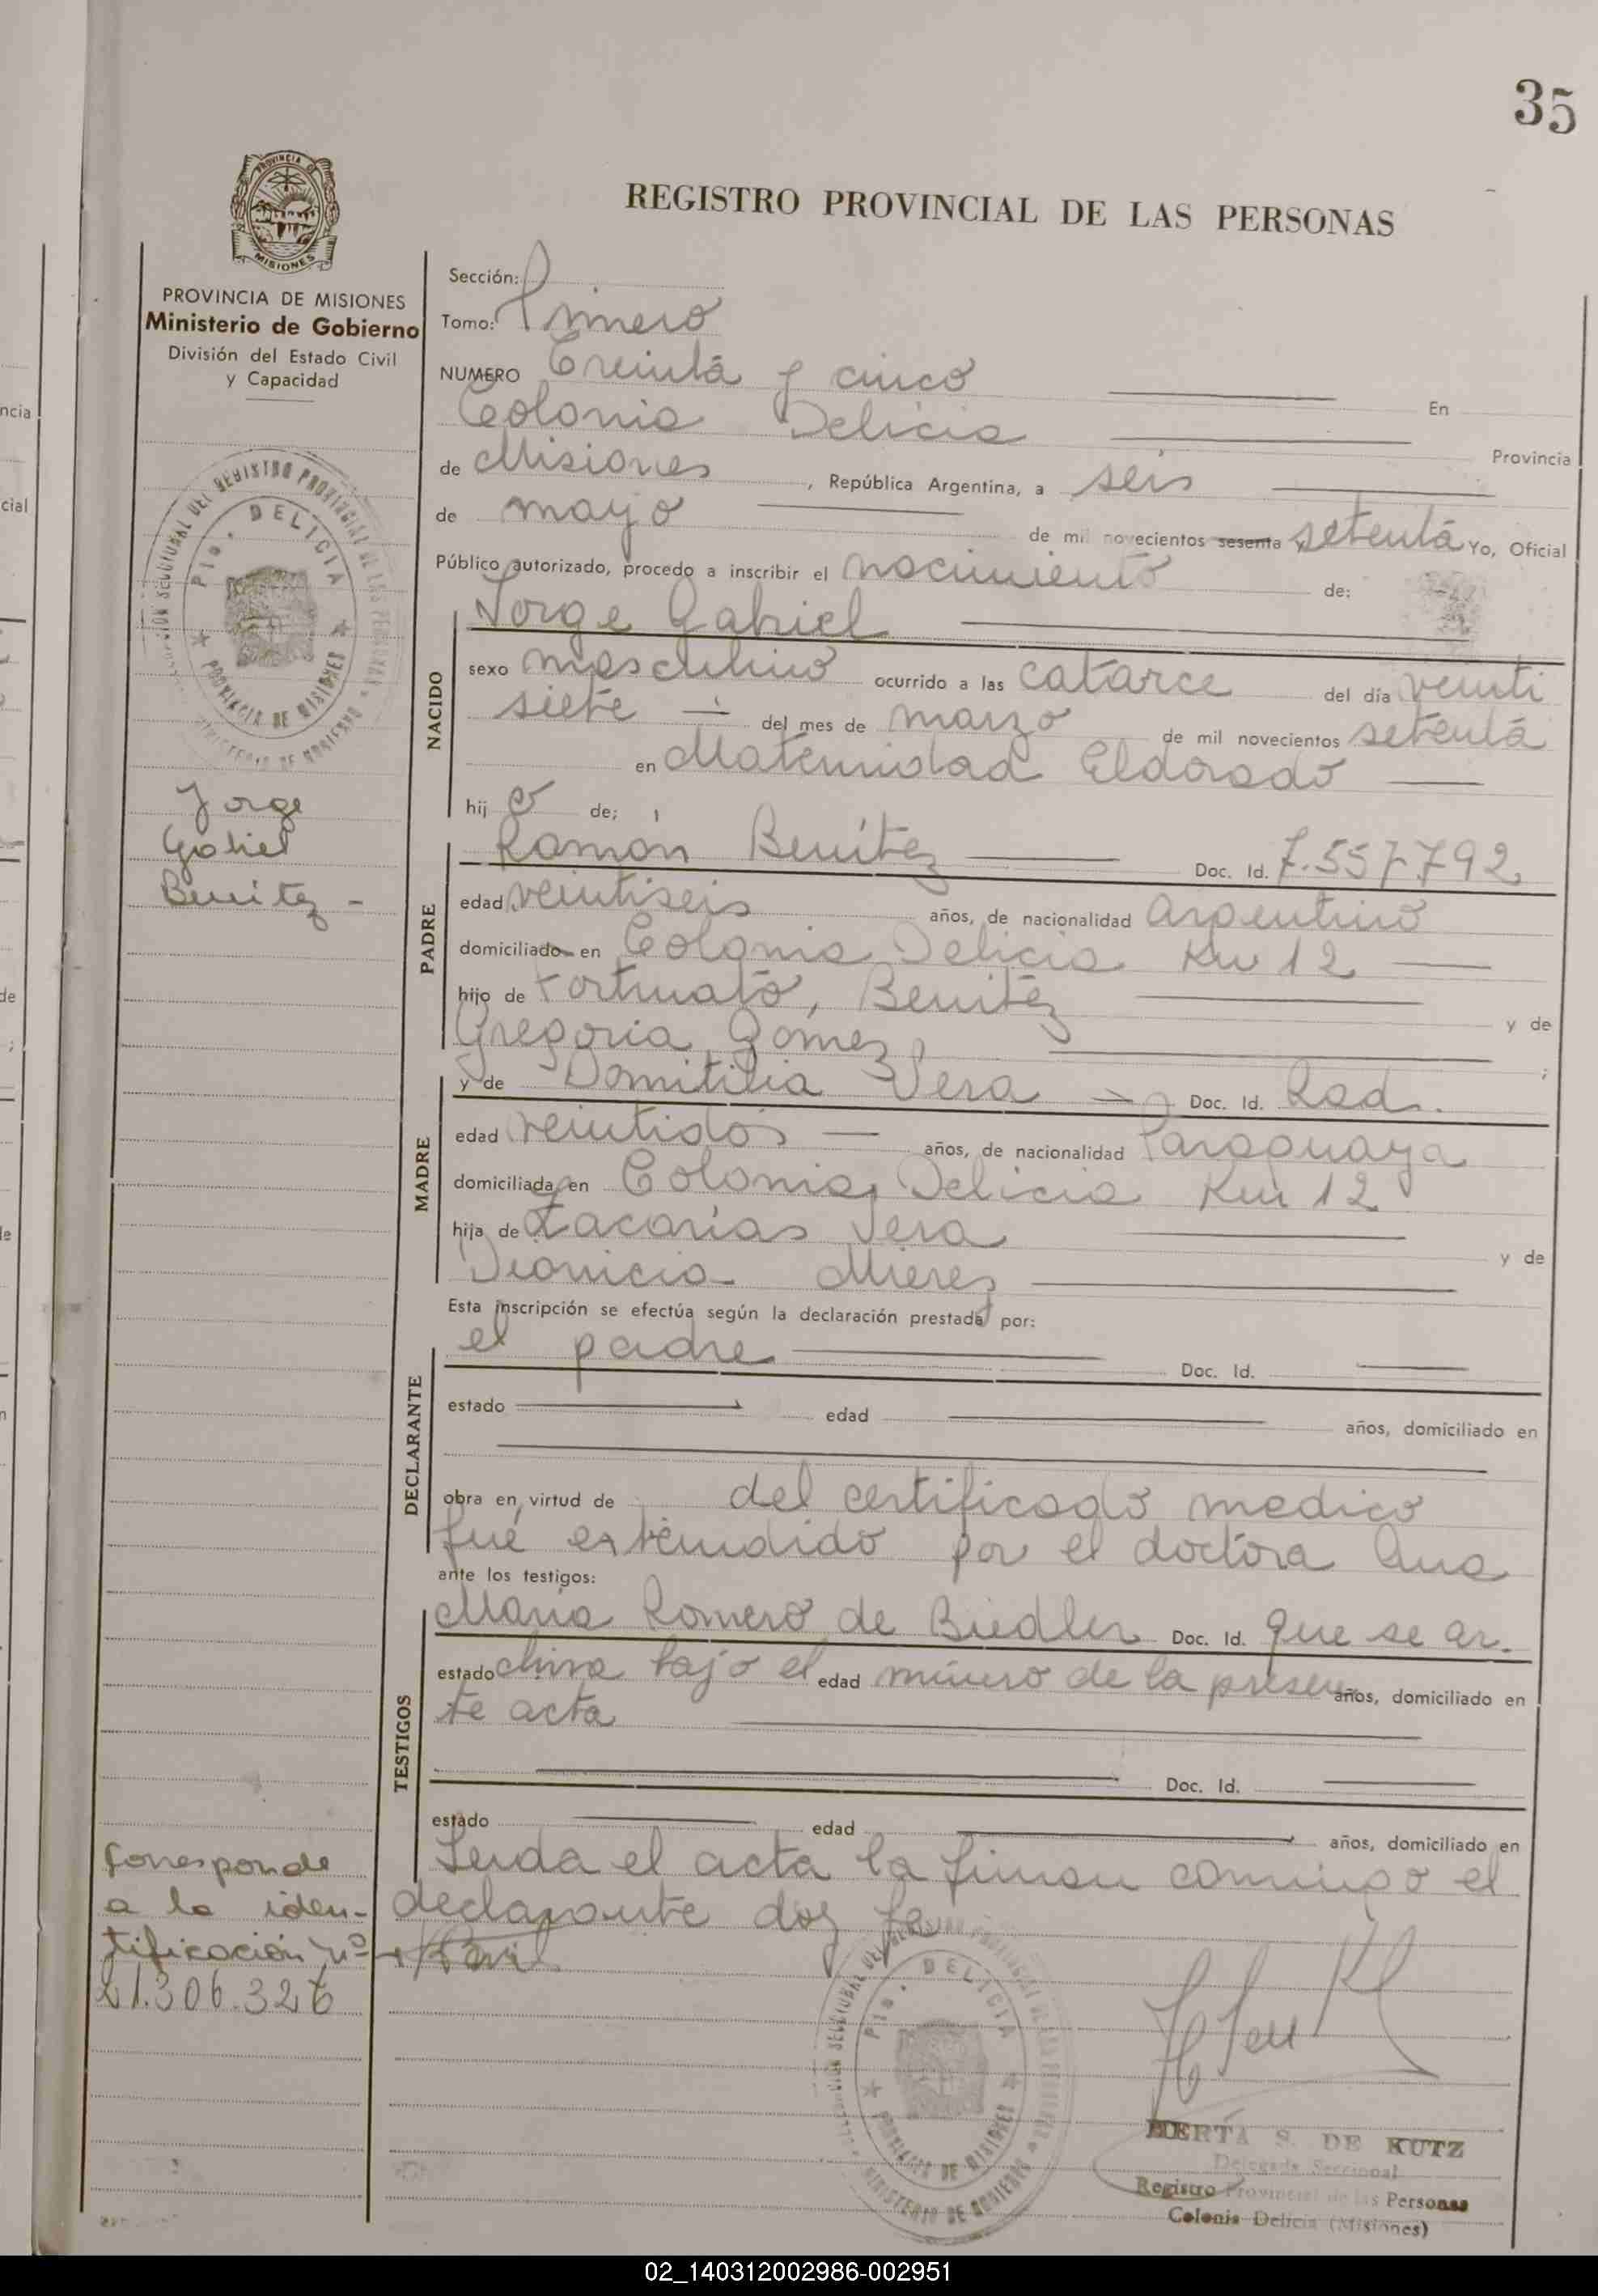 35
REGISTRO PROVINCIAL DE LAS PERSONAS
PROVINCIA DE MISIONES
Ministerio de Gobierno
División del Estado Civil
y Capacidad
Sección:
Tomo: Primero
NUMERO Treinta y cinco En
Colonia Delicia Provincia
de Misiones, República Argentina, a seis
de mayo de mil novecientos sesenta y setenta Yo, Oficial
Público autorizado, procedo a inscribir el nacimiento de:
NACIDO
Jorge Gabriel
sexo masculino ocurrido a las catarce del día veinti
siete del mes de marzo de mil novecientos setenta
en Maternidad Eldorado
hij o de;
Jorge
Gabriel
Benitez -
PADRE
Ramón Benítez Doc. Id. 7.557.792
edad veintiseis años, de nacionalidad argentino
domiciliado en Colonia Delicia Km 12
hijo de Fortunato, Benitez y de
Gregoria Gomez ;
MADRE
y de Domitilia Vera Doc. Id. Rad.
edad veintidos años, de nacionalidad Paraguaya
domiciliada en Colonia Delicia Km 12
hija de Zacarías Vera y de
Dionicia Mieres
Esta inscripción se efectúa según la declaración prestada por:
DECLARANTE
el padre Doc. Id.
estado edad años, domiciliado en
obra en virtud de del certificado medico
fué extendido por el doctora Ana
ante los testigos:
TESTIGOS
Maria Romero de Biedler Doc. Id. que se ar-
estado chiva bajo el edad número de la presen años, domiciliado en
te acta
Doc. Id.
estado edad años, domiciliado en
Leída el acta la firman conmigo el
declarante doy fe
Corresponde
a la iden-
tificación nº
21.306.326
PROVINCIA DE MISIONES
DELICIA
BERTA S. DE KUTZ
Delegada Seccional
Registro Provincial de las Personas
Colonia Delicia (Misiones)
02_140312002986-002951